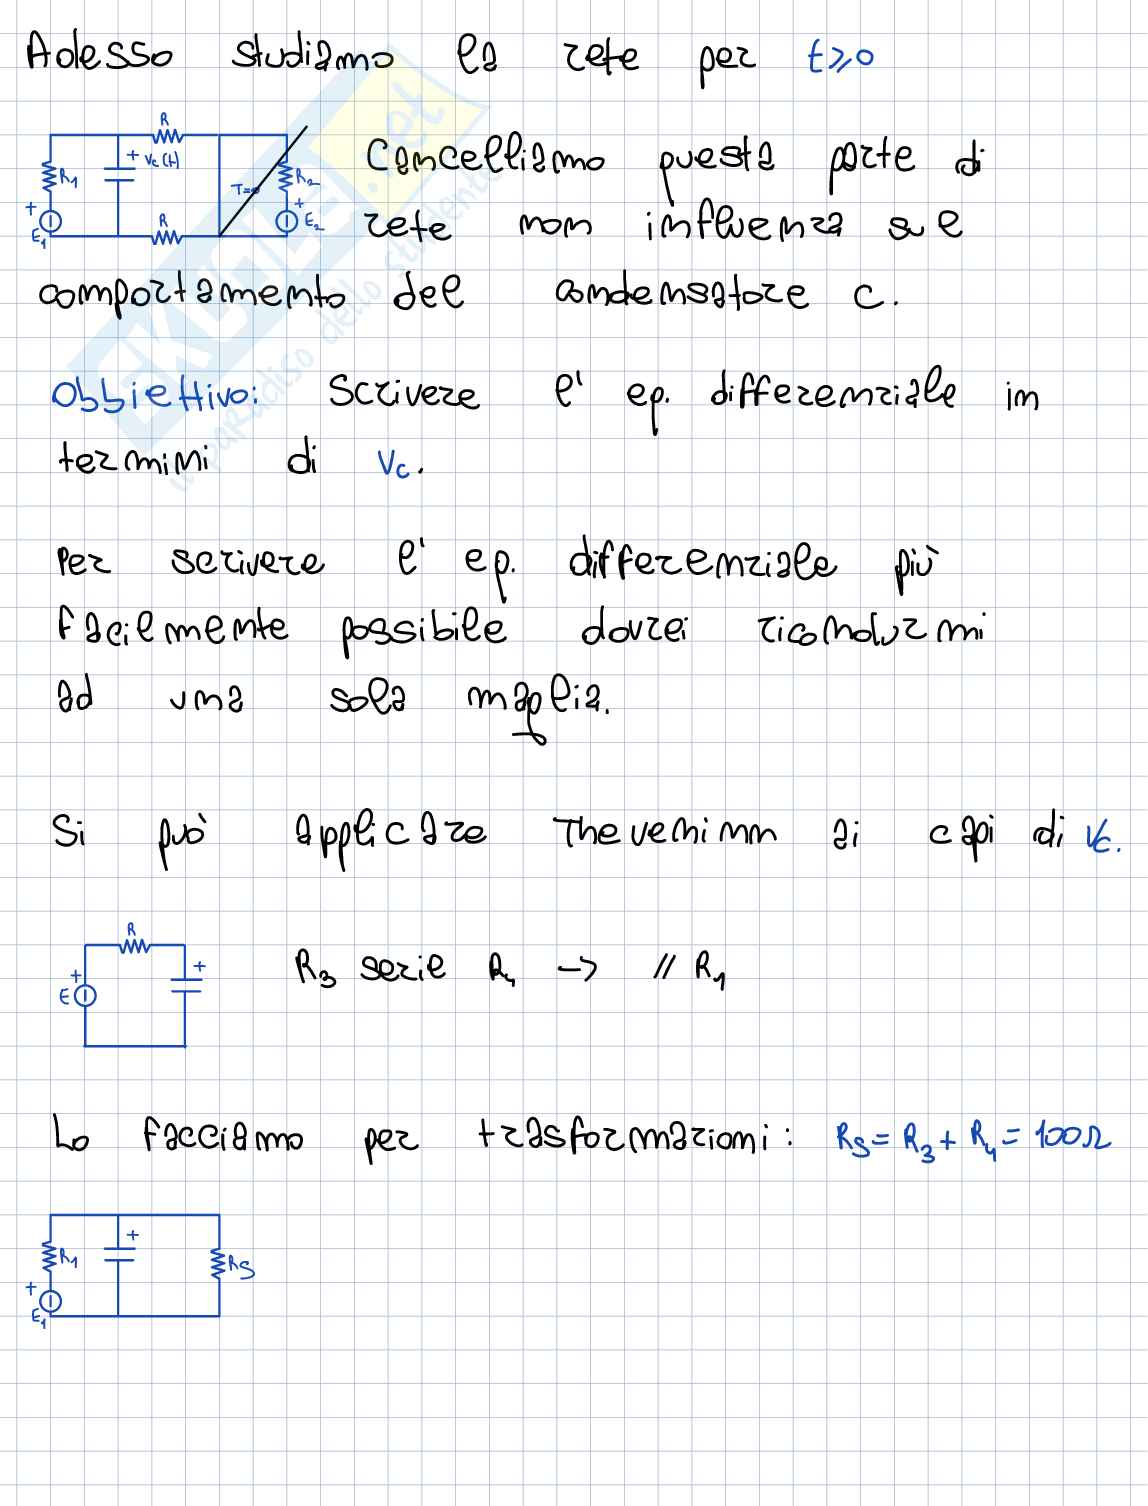 Adesso studiamo la rete per t⩾0
R
+ Vc(t)
R1
T=0
R2
+
E1
R
+
E2
Cancelliamo questa parte di
rete non influenza sul
comportamento del condensatore C.
Obbiettivo: Scrivere l' eq. differenziale in
termini di Vc.
Per scrivere l' eq. differenziale più
facilmente possibile dovrei ricondurmi
ad una sola maglia.
Si può applicare Theveninn ai capi di Vc.
R
+
+
E
R3 serie R4 -> // R1
Lo facciamo per trasformazioni: RS = R3 + R4 = 100Ω
+
R1
RS
+
E1
EKUELE.net
il paradiso dello studente